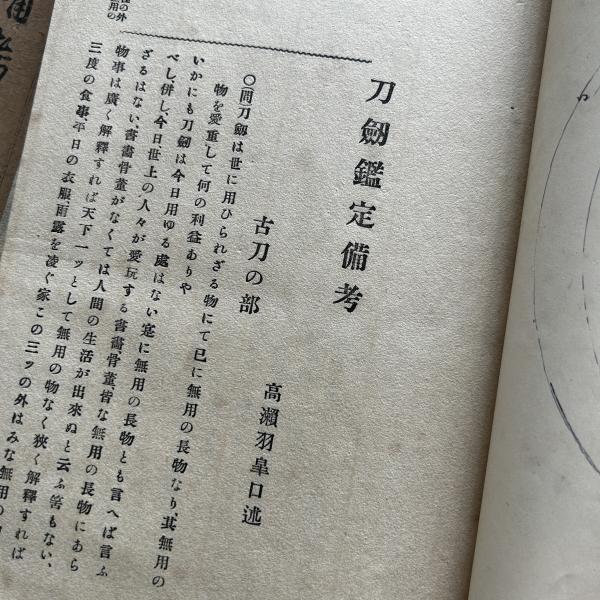 刀劔鑑定備考
高瀨羽皐口述
古刀の部
○(問)刀劔は世に用ひられざる物にて已に無用の長物なり、其無用の
物を愛重して何の利益ありや
いかにも刀劔は今日用ゆる處はない寔に無用の長物とも言へば言ふ
べし、併し今日世上の人々が愛玩する書畵、骨董、皆な無用の長物にあら
ざるはない、書畵骨董がなくては人間の生活が出來ぬと云ふ筈もない、
物事は廣く解釋すれば天下一ッとして無用の物なく狹く解釋すれば
三度の食事、平日の衣服、雨露を凌ぐ家この三ッの外はみな無用の
の外
用の